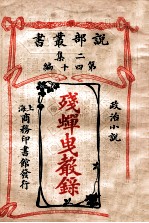 說部叢書
二集
第四十編
政治小說
殘蟬曳聲錄
上海
商務印書館發行